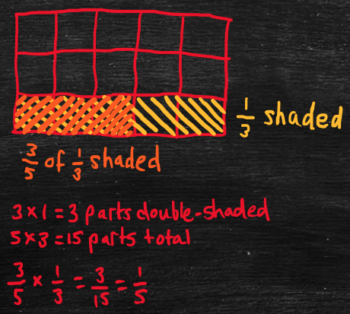 1/3 shaded
3/5 of 1/3 shaded
3×1=3 parts double-shaded
5×3=15 parts total
3/5 × 1/3 = 3/15 = 1/5